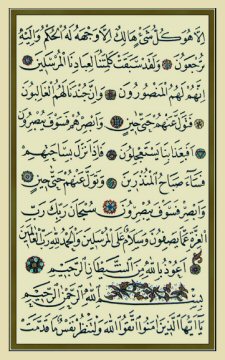 إِلَّا هُوَ كُلُّ شَيْءٍ هَالِكٌ إِلَّا وَجْهَهُ لَهُ الْحُكْمُ وَإِلَيْهِ
تُرْجَعُونَ وَلَقَدْ سَبَقَتْ كَلِمَتُنَا لِعِبَادِنَا الْمُرْسَلِينَ
إِنَّهُمْ لَهُمُ الْمَنْصُورُونَ وَإِنَّ جُنْدَنَا لَهُمُ الْغَالِبُونَ
فَتَوَلَّ عَنْهُمْ حَتَّى حِينٍ وَأَبْصِرْهُمْ فَسَوْفَ يُبْصِرُونَ
أَفَبِعَذَابِنَا يَسْتَعْجِلُونَ فَإِذَا نَزَلَ بِسَاحَتِهِمْ
فَسَاءَ صَبَاحُ الْمُنْذَرِينَ وَتَوَلَّ عَنْهُمْ حَتَّى حِينٍ
وَأَبْصِرْ فَسَوْفَ يُبْصِرُونَ سُبْحَانَ رَبِّكَ رَبِّ
الْعِزَّةِ عَمَّا يَصِفُونَ وَسَلَامٌ عَلَى الْمُرْسَلِينَ وَالْحَمْدُ لِلَّهِ رَبِّ الْعَالَمِينَ
أَعُوذُ بِاللَّهِ مِنَ الشَّيْطَانِ الرَّجِيمِ
بِسْمِ اللَّهِ الرَّحْمَنِ الرَّحِيمِ
يَا أَيُّهَا الَّذِينَ آمَنُوا اتَّقُوا اللَّهَ وَلْتَنْظُرْ نَفْسٌ مَا قَدَّمَتْ